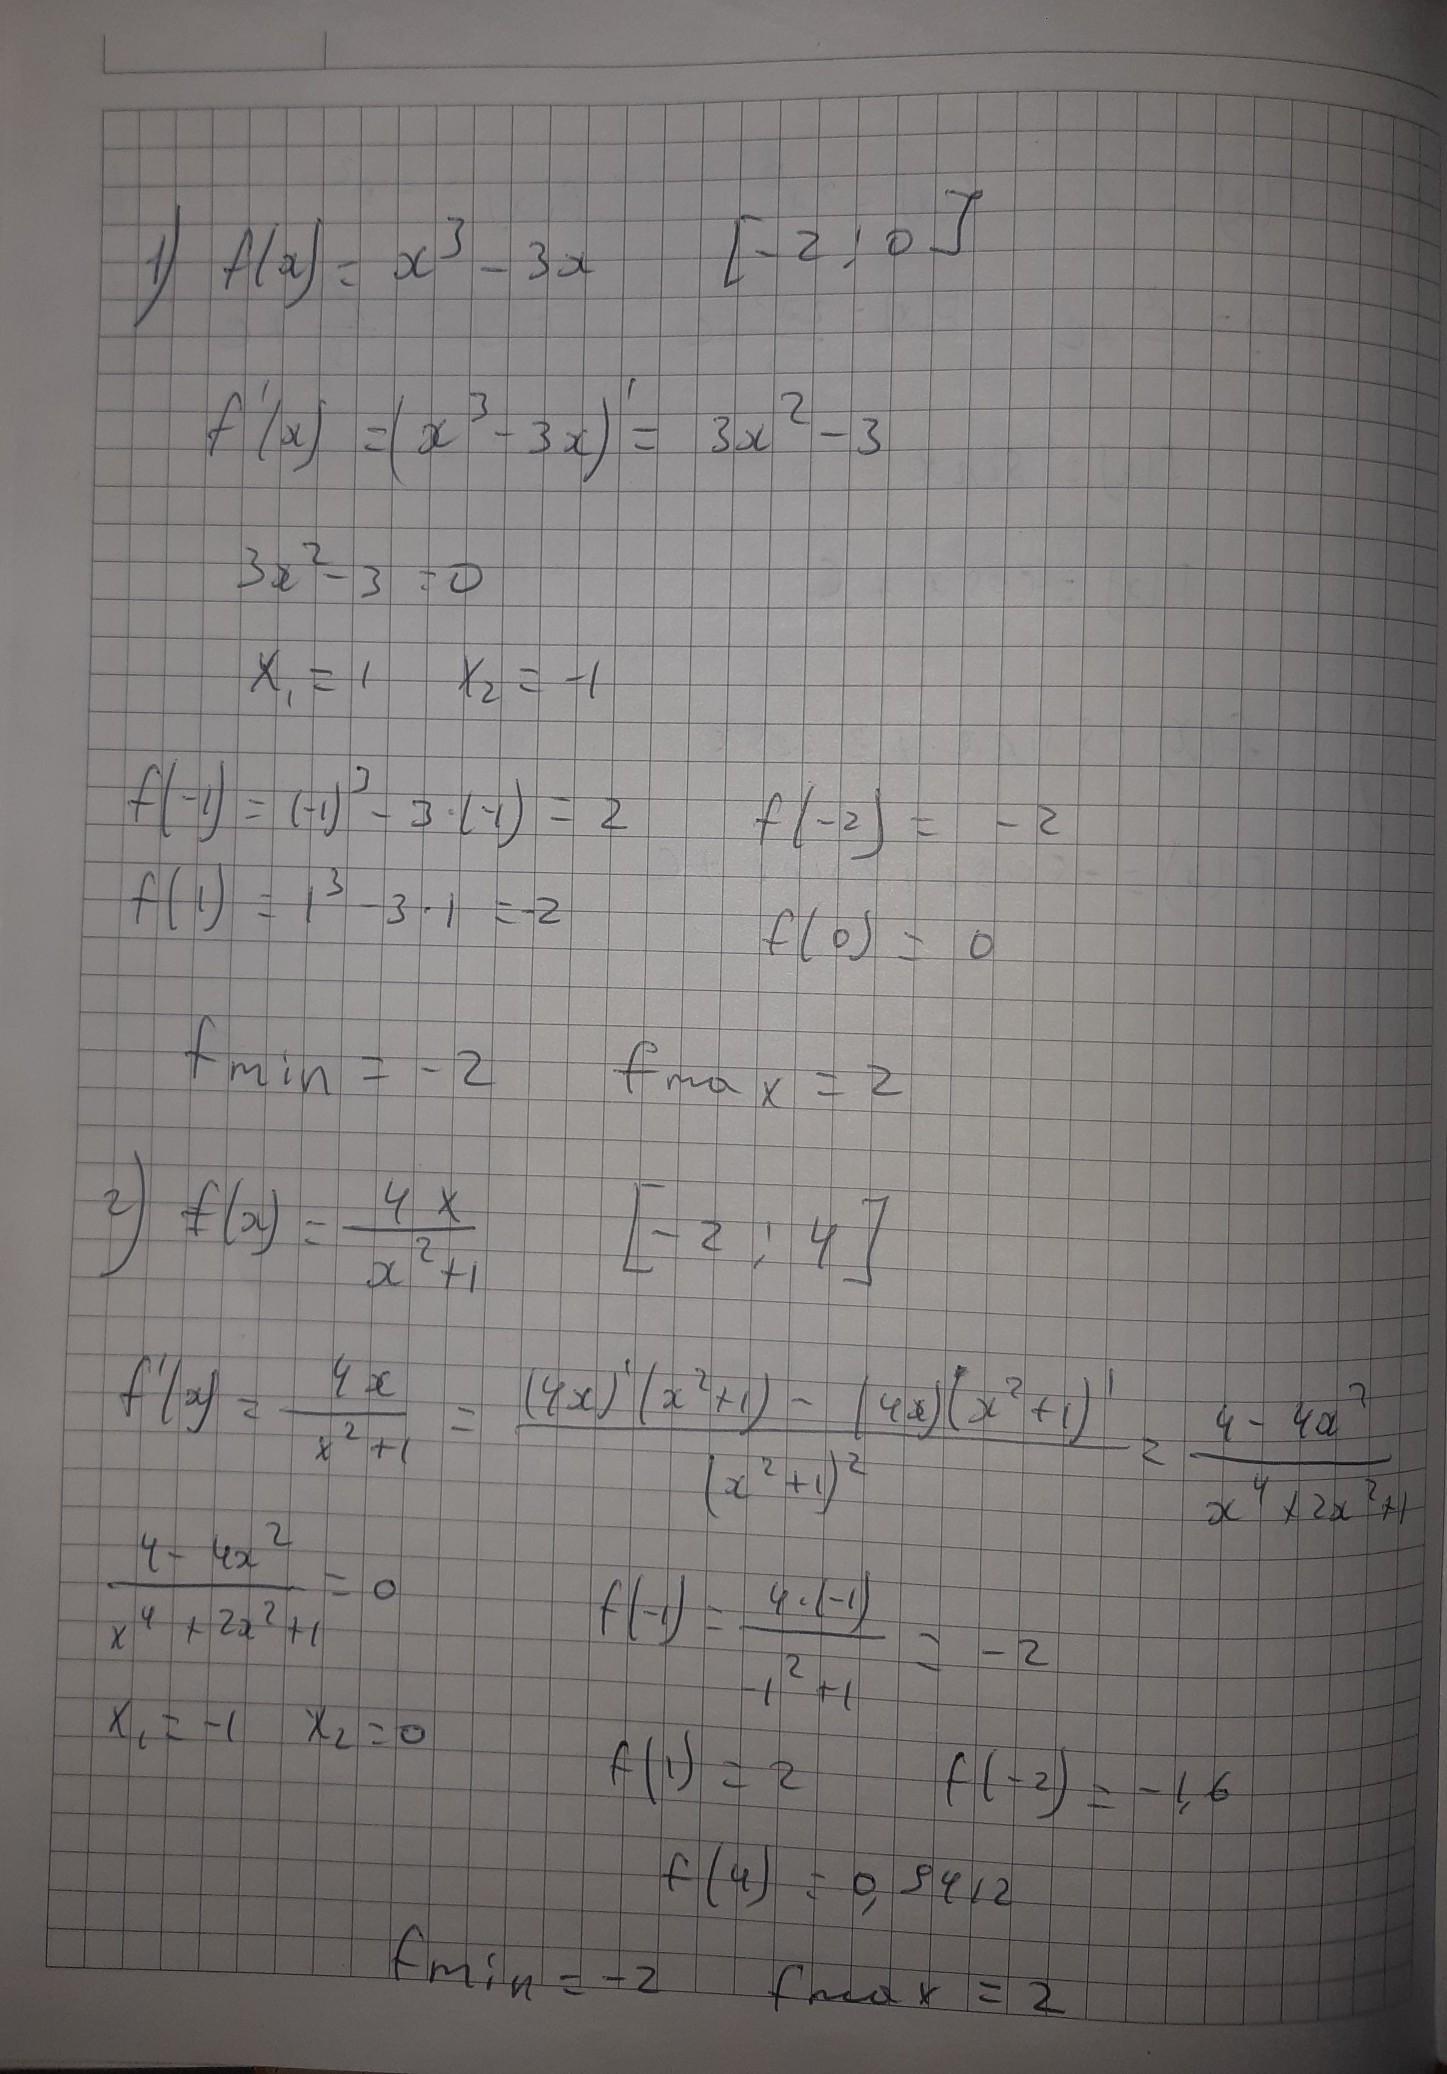 1) f(x) = x³ - 3x [-2; 0]
f'(x) = (x³ - 3x)' = 3x² - 3
3x² - 3 = 0
x₁ = 1 x₂ = -1
f(-1) = (-1)³ - 3·(-1) = 2 f(-2) = -2
f(1) = 1³ - 3·1 = -2
f(0) = 0
fmin = -2 fmax = 2
2) f(x) = 4x/(x²+1) [-2; 4]
f'(x) = 4x/(x²+1) = ((4x)'(x²+1) - (4x)(x²+1)')/(x²+1)² = (4 - 4x²)/(x⁴+2x²+1)
(4 - 4x²)/(x⁴+2x²+1) = 0 f(-1) = 4·(-1)/(-1²+1) = -2
x₁ = -1 x₂ = 0
f(1) = 2 f(-2) = -1,6
f(4) = 0,9412
fmin = -2 fmax = 2